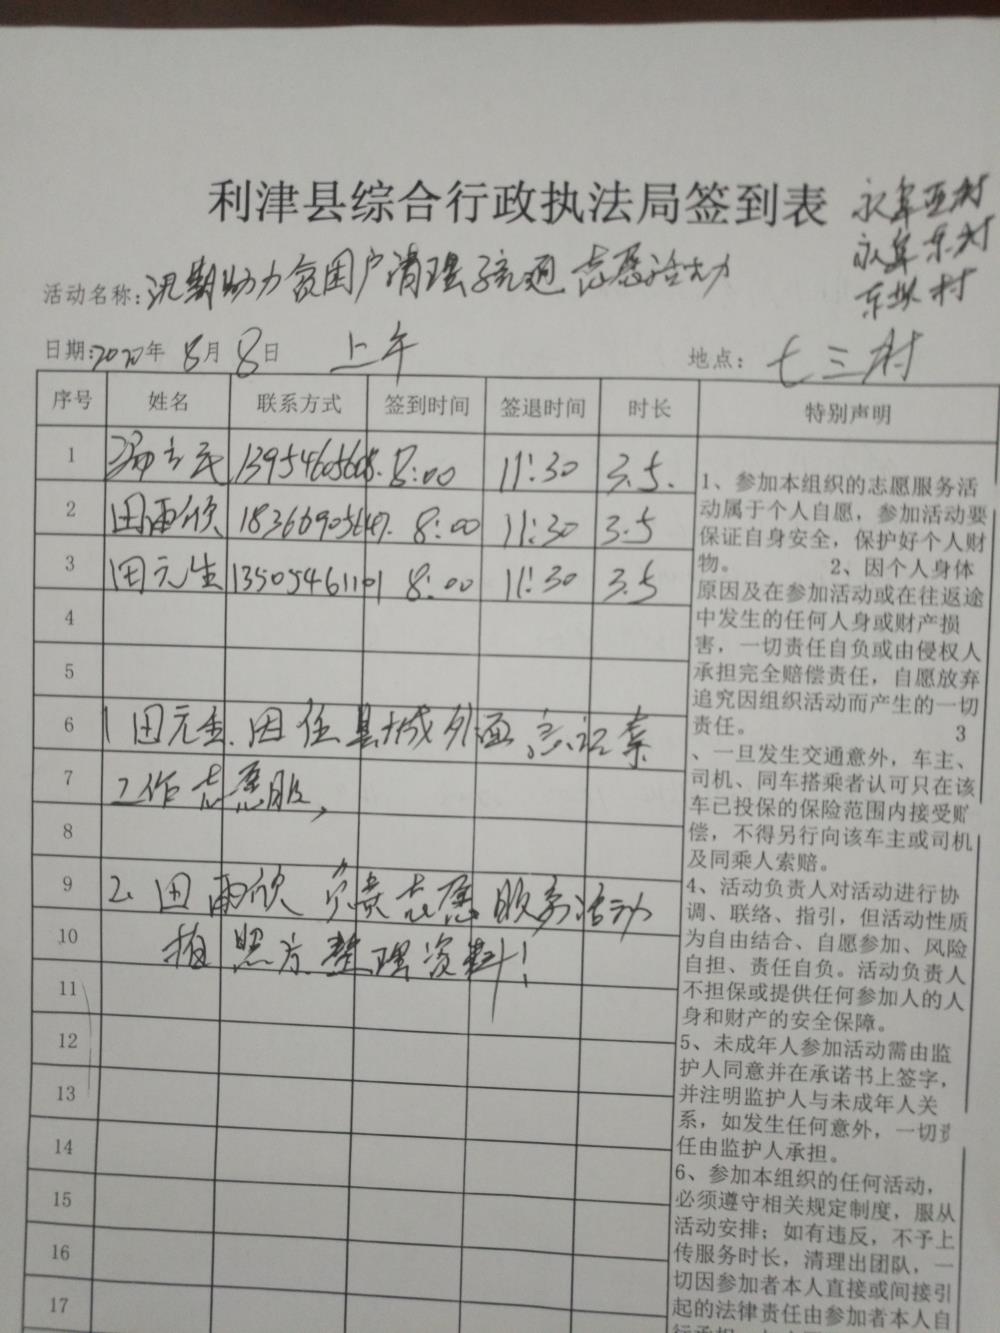 利津县综合行政执法局签到表
永阜西村
永阜东村
东坝村
活动名称:汛期助力贫困户清理疏通志愿活动
日期:2020年8月8日 上午 地点:七三村
序号 姓名 联系方式 签到时间 签退时间 时长 特别声明
1 立民 13954605608. 8:00 11:30 3.5.
2 田雨欣 18366905647. 8:00 11:30 3.5
3 田元生 13505461101 8:00 11:30 3.5
4
5
6 1 田元生.因在县城外面忘记拿
7 工作志愿服,
8
9 2、田雨欣负责志愿服务活动
10 拍照片整理资料!
11
12
13
14
15
16
17
1、参加本组织的志愿服务活
动属于个人自愿，参加活动要
保证自身安全，保护好个人财
物。 2、因个人身体
原因及在参加活动或在往返途
中发生的任何人身或财产损
害，一切责任自负或由侵权人
承担完全赔偿责任，自愿放弃
追究因组织活动而产生的一切
责任。 3
、一旦发生交通意外，车主、
司机、同车搭乘者认可只在该
车已投保的保险范围内接受赔
偿，不得另行向该车主或司机
及同乘人索赔。
4、活动负责人对活动进行协
调、联络、指引，但活动性质
为自由结合、自愿参加、风险
自担、责任自负。活动负责人
不担保或提供任何参加人的人
身和财产的安全保障。
5、未成年人参加活动需由监
护人同意并在承诺书上签字，
并注明监护人与未成年人关
系，如发生任何意外，一切责
任由监护人承担。
6、参加本组织的任何活动，
必须遵守相关规定制度，服从
活动安排；如有违反，不予上
传服务时长，清理出团队，一
切因参加者本人直接或间接引
起的法律责任由参加者本人自
行承担